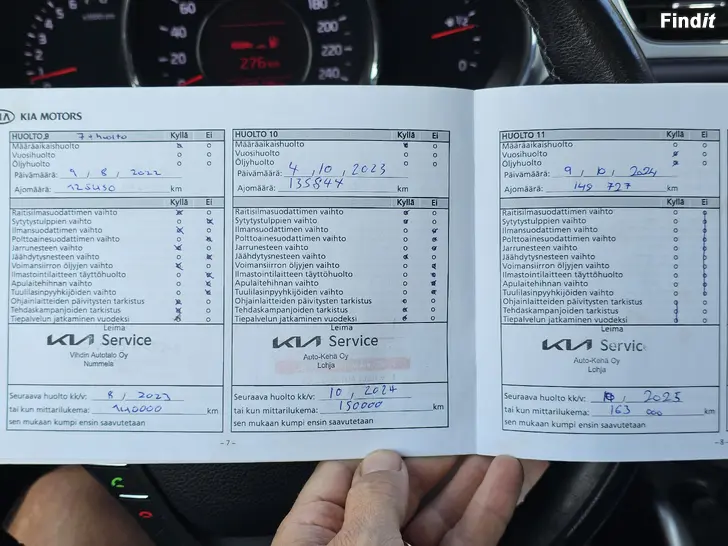 Findit
60
40
20
0
180
200
220
240
276 km
1/2
0
KIA MOTORS
HUOLTO 9 7 + huolto Kyllä Ei
Määräaikaishuolto
Vuosihuolto
Öljyhuolto
Päivämäärä: 9, 8, 2022
Ajomäärä: 125430 km
Raitisilmasuodattimen vaihto
Sytytystulppien vaihto
Ilmansuodattimen vaihto
Polttoainesuodattimen vaihto
Jarrunesteen vaihto
Jäähdytysnesteen vaihto
Voimansiirron öljyjen vaihto
Ilmastointilaitteen täyttöhuolto
Apulaitehihnan vaihto
Tuulilasinpyyhkijöiden vaihto
Ohjainlaitteiden päivitysten tarkistus
Tehdaskampanjoiden tarkistus
Tiepalvelun jatkaminen vuodeksi
Leima
KIA Service
Vihdin Autotalo Oy
Nummela
Seuraava huolto kk/v: 8, 2023
tai kun mittarilukema: 140000 km
sen mukaan kumpi ensin saavutetaan
-7-
HUOLTO 10 Kyllä Ei
Määräaikaishuolto
Vuosihuolto
Öljyhuolto
Päivämäärä: 4, 10, 2023
Ajomäärä: 135844 km
Raitisilmasuodattimen vaihto
Sytytystulppien vaihto
Ilmansuodattimen vaihto
Polttoainesuodattimen vaihto
Jarrunesteen vaihto
Jäähdytysnesteen vaihto
Voimansiirron öljyjen vaihto
Ilmastointilaitteen täyttöhuolto
Apulaitehihnan vaihto
Tuulilasinpyyhkijöiden vaihto
Ohjainlaitteiden päivitysten tarkistus
Tehdaskampanjoiden tarkistus
Tiepalvelun jatkaminen vuodeksi
Leima
KIA Service
Auto-Kehä Oy
Lohja
Seuraava huolto kk/v: 10, 2024
tai kun mittarilukema: 150000 km
sen mukaan kumpi ensin saavutetaan
HUOLTO 11 Kyllä Ei
Määräaikaishuolto
Vuosihuolto
Öljyhuolto
Päivämäärä: 9, 10, 2024
Ajomäärä: 149 727 km
Raitisilmasuodattimen vaihto
Sytytystulppien vaihto
Ilmansuodattimen vaihto
Polttoainesuodattimen vaihto
Jarrunesteen vaihto
Jäähdytysnesteen vaihto
Voimansiirron öljyjen vaihto
Ilmastointilaitteen täyttöhuolto
Apulaitehihnan vaihto
Tuulilasinpyyhkijöiden vaihto
Ohjainlaitteiden päivitysten tarkistus
Tehdaskampanjoiden tarkistus
Tiepalvelun jatkaminen vuodeksi
Leima
KIA Service
Auto-Kehä Oy
Lohja
Seuraava huolto kk/v: 10, 2025
tai kun mittarilukema: 163 000 km
sen mukaan kumpi ensin saavutetaan
-8-